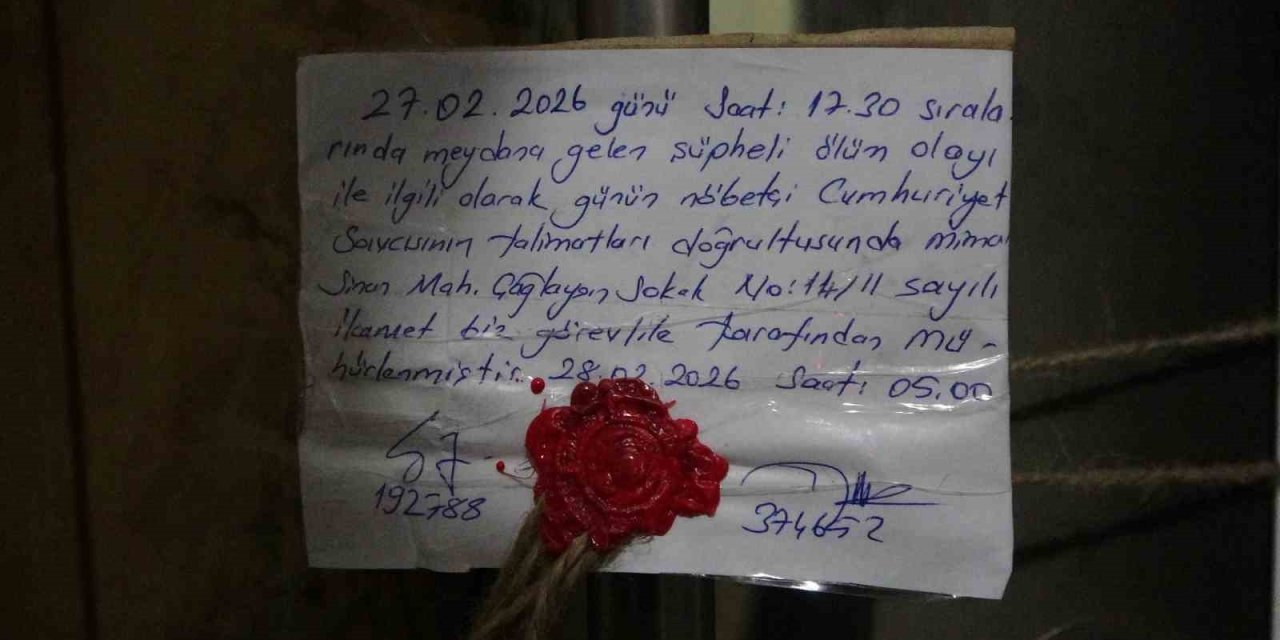 27.02.2026 günü Saat: 17.30 sırala
rında meydana gelen şüpheli ölüm olayı
ile ilgili olarak günün nöbetçi Cumhuriyet
Savcısının talimatları doğrultusunda mima
Sinan Mah. Çağlayan Sokak No:14/11 sayılı
ikamet biz görevlile tarafından mü-
hürlenmiştir. 28.02.2026 Saat: 05.00
192788
374652